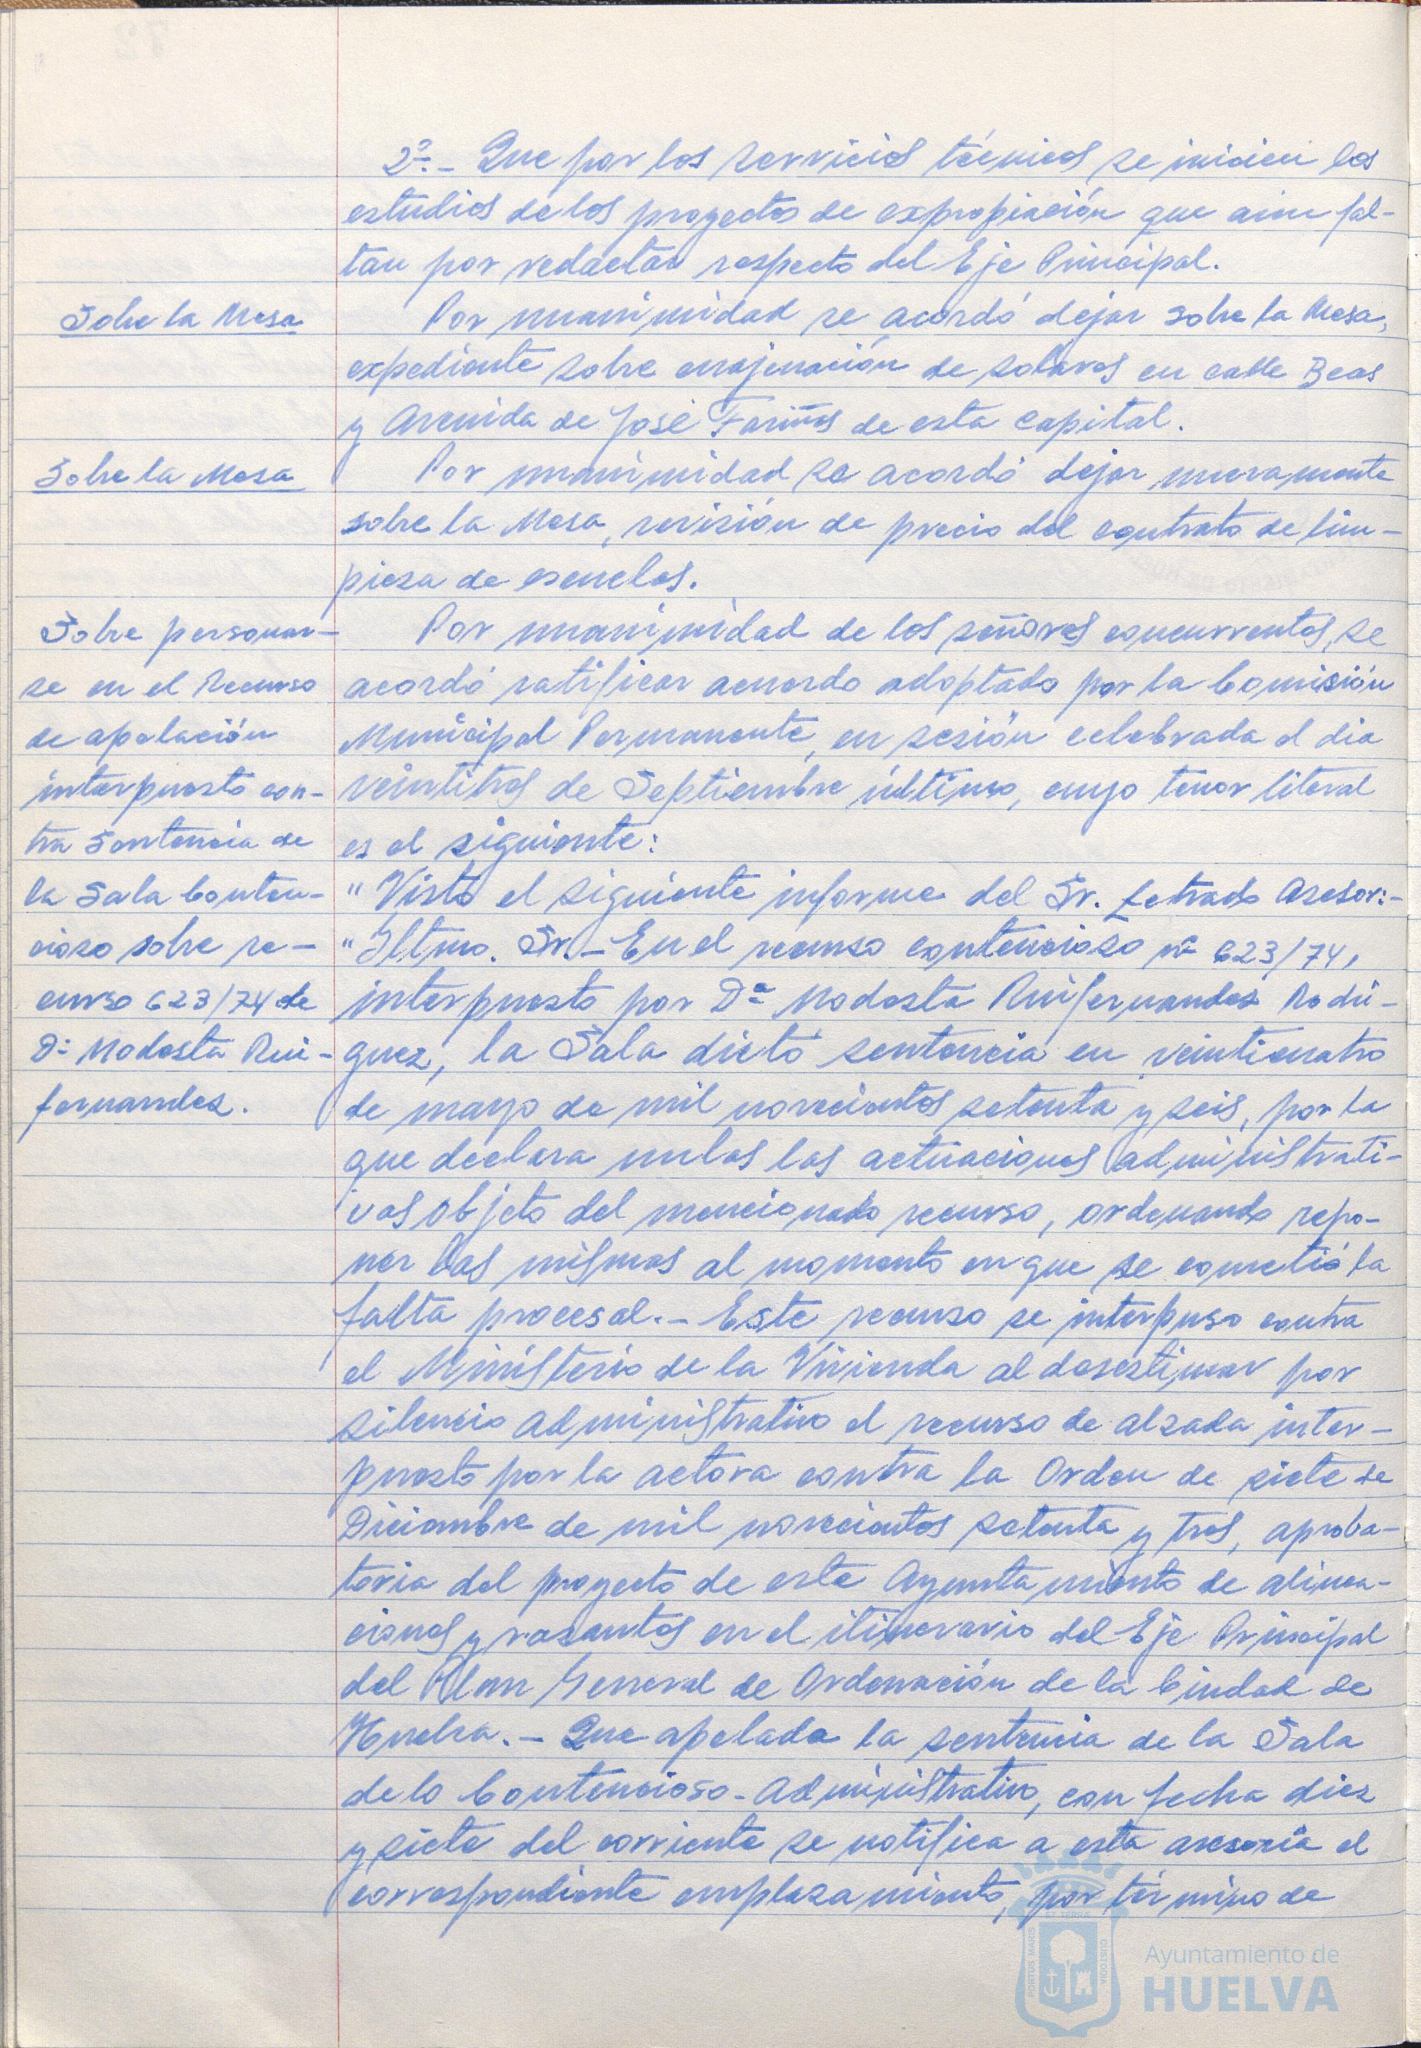 2º.- Que por los servicios técnicos se inicien los
estudios de los proyectos de expropiación que aun fal-
tan por redactar respecto del Eje Principal.
Sobre la Mesa
Por unanimidad se acordó dejar sobre la Mesa,
expediente sobre enajenación de solares en calle Beas
y Avenida de José Fariñas de esta capital.
Sobre la Mesa
Por unanimidad se acordó dejar nuevamente
sobre la Mesa, revisión de precio del contrato de lim-
pieza de escuelas.
Sobre personar-
se en el Recurso
de apelación
interpuesto con-
tra Sentencia de
la Sala Conten-
cioso sobre re-
curso 623/74 de
Dª Modesta Rui-
fernandez.
Por unanimidad de los señores concurrentes, se
acordó ratificar acuerdo adoptado por la Comisión
Municipal Permanente, en sesión celebrada el dia
veintitres de Septiembre último, cuyo tenor literal
es el siguiente:
"Visto el siguiente informe del Sr. Letrado Asesor:-
"Iltmo. Sr.- En el recurso contencioso nº 623/74,
interpuesto por Dª Modesta Ruifernandez Rodri-
guez, la Sala dictó sentencia en veinticuatro
de mayo de mil novecientos setenta y seis, por la
que declara nulas las actuaciones administrati-
vas objeto del mencionado recurso, ordenando repo-
ner las mismas al momento en que se cometió la
falta procesal.- Este recurso se interpuso contra
el Ministerio de la Vivienda al desestimar por
silencio administrativo el recurso de alzada inter-
puesto por la actora contra la Orden de siete de
Diciembre de mil novecientos setenta y tres, aproba-
toria del proyecto de este Ayuntamiento de alinea-
ciones y rasantes en el itinerario del Eje Principal
del Plan General de Ordenación de la Ciudad de
Huelva.- Que apelada la sentencia de la Sala
de lo Contencioso-Administrativo, con fecha diez
y siete del corriente se notifica a esta asesoria el
correspondiente emplazamiento, por término de
PORTUS MARIS
ET TERRÆ
CUSTODIA
Ayuntamiento de
HUELVA